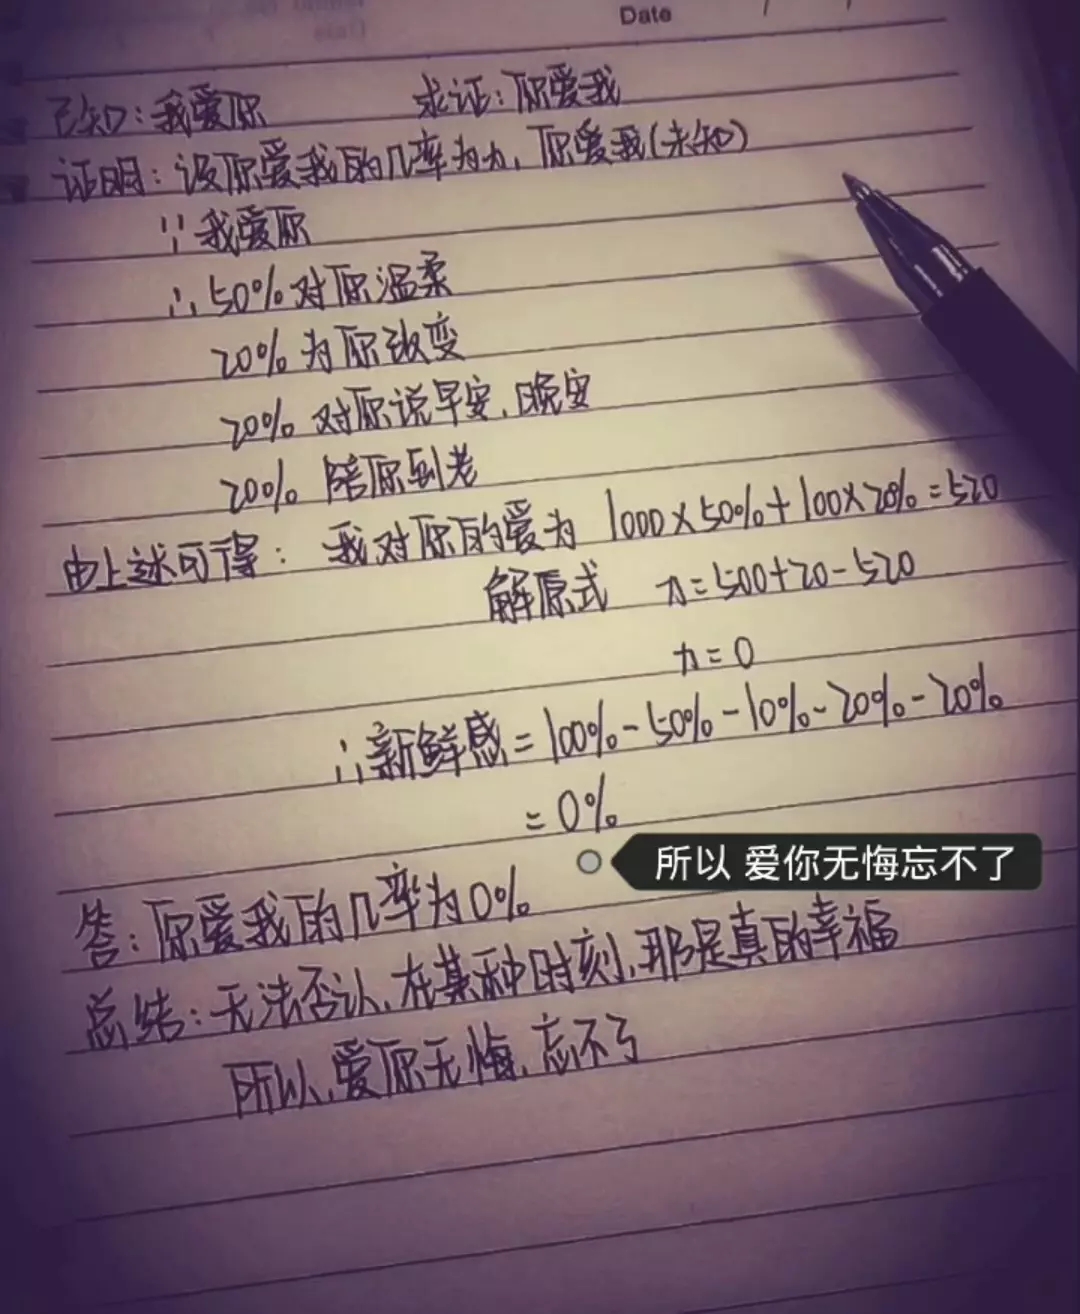 Date / /
已知：我爱你 求证：你爱我
证明：设你爱我的几率为n，你爱我(未知)
∵我爱你
∴50%对你温柔
20%为你改变
20%对你说早安、晚安
20%陪你到老
由上述可得：我对你的爱为1000×50%+100×20%=520
解原式 n=500+20-520
n=0
∴新鲜感=100%-50%-10%-20%-20%
=0%
所以 爱你无悔忘不了
答：你爱我的几率为0%
总结：无法否认，在某种时刻，那是真的幸福
所以，爱你无悔，忘不了